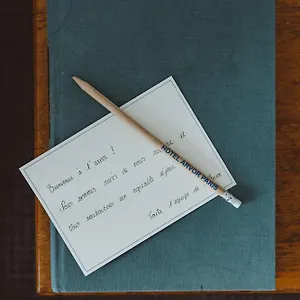 Bienvenue à l'arvor !
Nous sommes ravis de vous et
vous souhaitons un agréable séjour.
Toute l'équipe de
HOTEL ARVOR PARIS